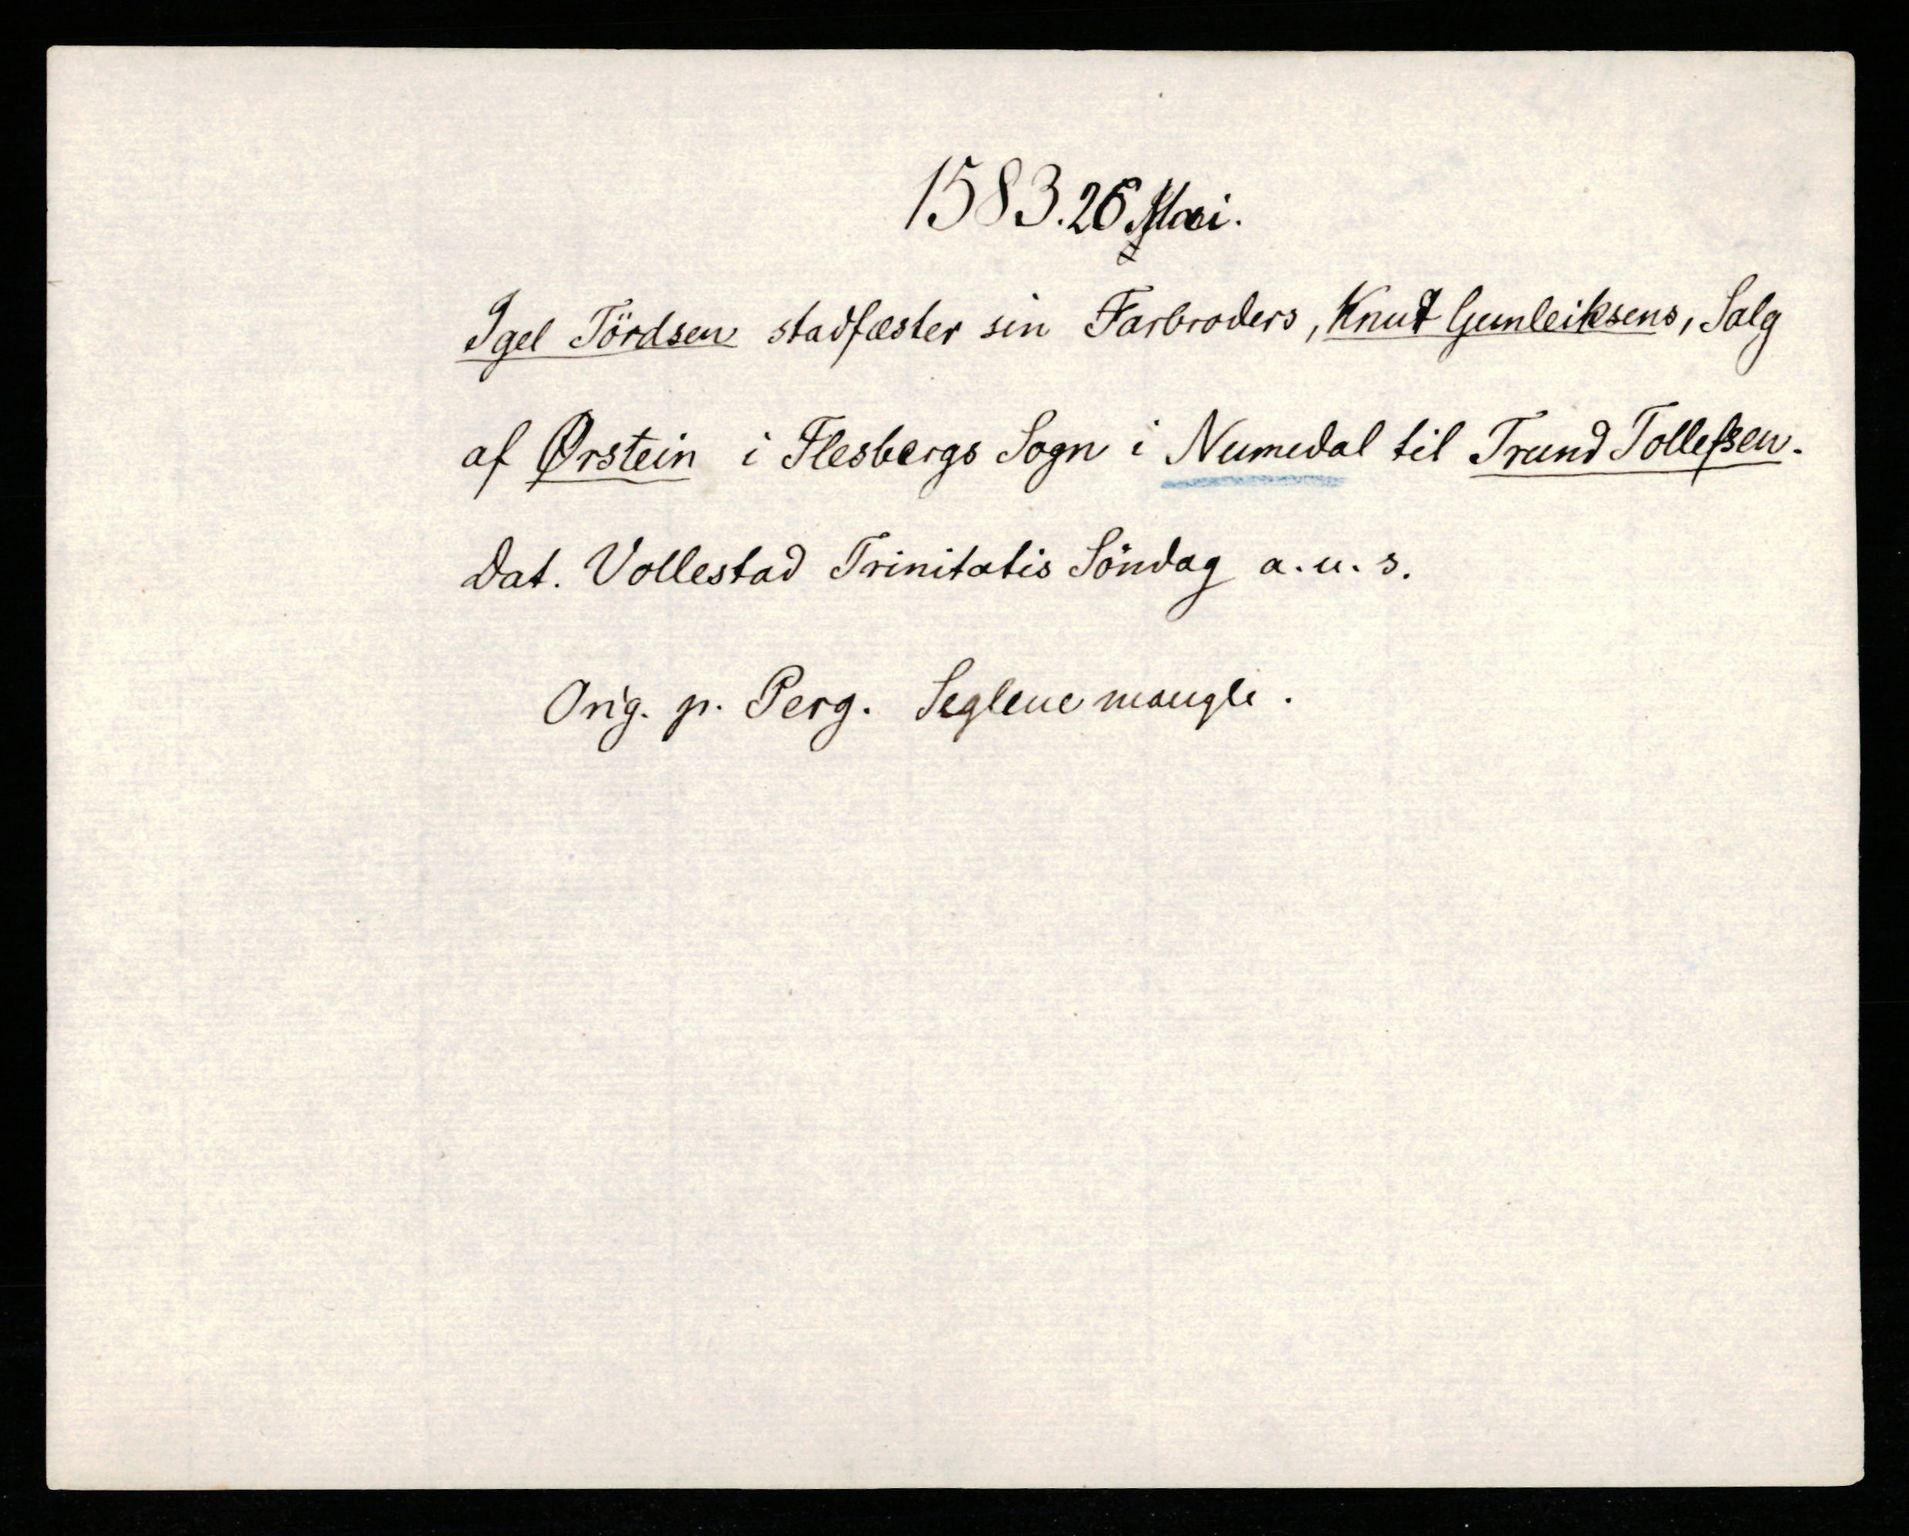 1583. 26 Mai.
Igel Tördsen stadfæster sin Farbroders, Knut Gunleiksens, Salg
af Ørstein i Flesbergs Sogn i Numedal til Trund Tollefsen.
Dat. Vollestad Trinitatis Söndag a. u. s.
Orig. p. Perg. Seglene mangle.